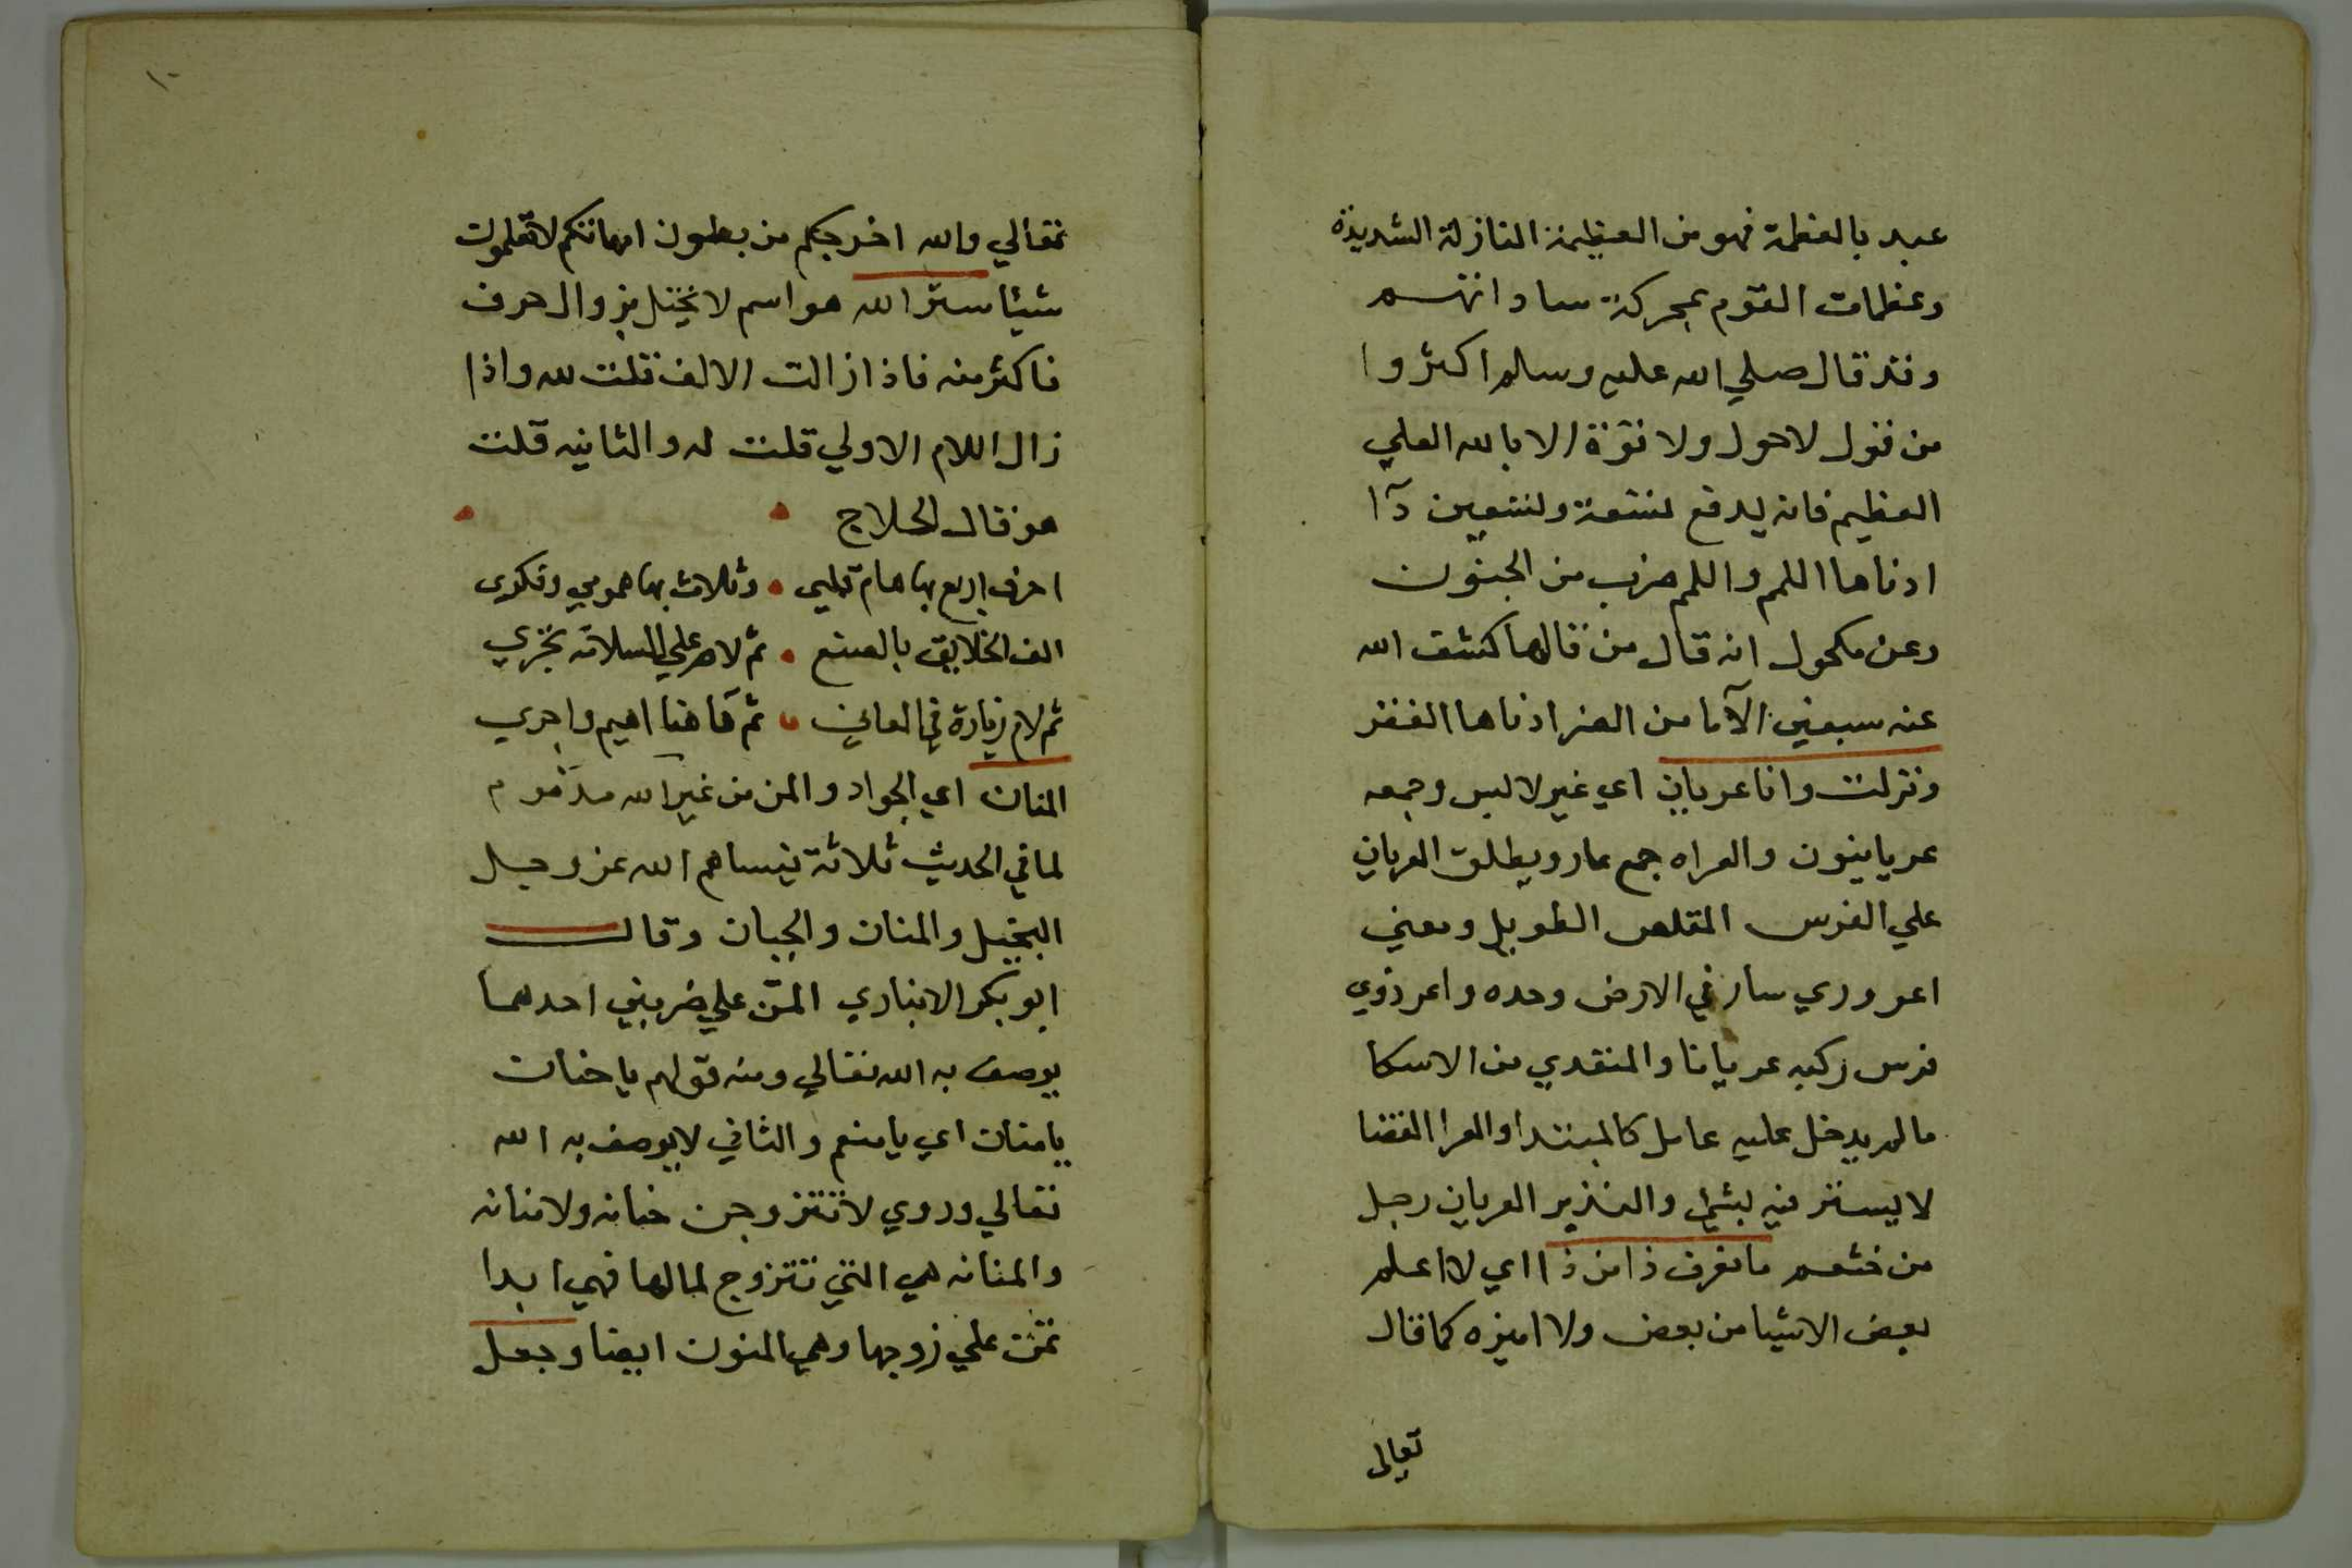 عبد بالعظمة فهو من العظيمة النازلة الشديدة
وعظمات القوم بحركة ساداتهم
وقد قال صلي الله عليه وسلم اكثروا
من قول لاحول ولا قوة الا بالله العلي
العظيم فانه يدفع تسعة وتسعين دآا
ادناها اللمم واللمم ضرب من الجنون
وعن مكحول انه قال من قالها كشف الله
عنه سبعين الآما من الضر ادناها الفقر
ونزلت وانا عريان اي غير لابس وجمعه
عريانيون والعراه جمع عار ويطلق العريان
علي الفرس المقلص الطويل ومعني
اعروري سار في الارض وحده واعروري
فرس ركبه عريانا والمنقدي من الاسما
مالم يدخل عليه عامل كالمبتدا والعرا الفضا
لا يستتر فيه بشي والنذير العريان رجل
من خثعم ما نعرف ذا من ذا اي لا اعلم
بعض الاشيا من بعض ولا اميزه كما قال
تعالى
١٠
تعالي والله اخرجكم من بطون امهاتكم لا تعلمون
شيئا ستر الله هو اسم لا يختل بزوال حرف
فاكثر منه فاذا زالت الالف قلت لله واذا
زال اللام الاولي قلت له والثانيه قلت
هو قال الحلاج
احرف اربع بها هام قلبي • وثلاث بها همومي وفكري
الف الخلايق بالصنع • ثم لام علي السلامة تجري
ثم لام زيادة في المعاني • ثم هآ هنا اهيم واجري
المنان اي الجواد والمن من غير الله مذموم
لما في الحديث ثلاثة ينساهم الله عز وجل
البخيل والمنان والجبان وقال
ابو بكر الانباري المن علي ضربين احدهما
يوصف به الله تعالي ومنه قولهم يا حنان
يا منان اي يا منعم والثاني لا يوصف به الله
تعالي وروي لا تتزوجن حنانه ولا منانه
والمنانه هي التي تتزوج لمالها فهي ابدا
تمن علي زوجها وهي المنون ايضا وجعل